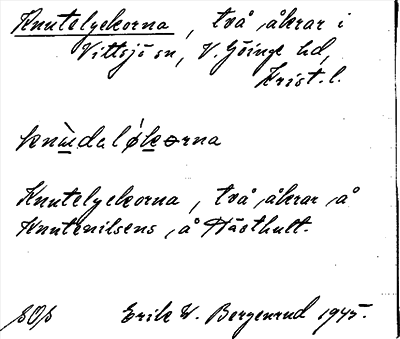 Knutelyckorna, två åkrar i
Vittsjö sn, V. Göinge hd,
Krist. l.
knùdaløkorna
Knutelyckorna, två åkrar å
Knutenilsens, å Hästhult.
SOS Erik W. Bergenrud 1945.